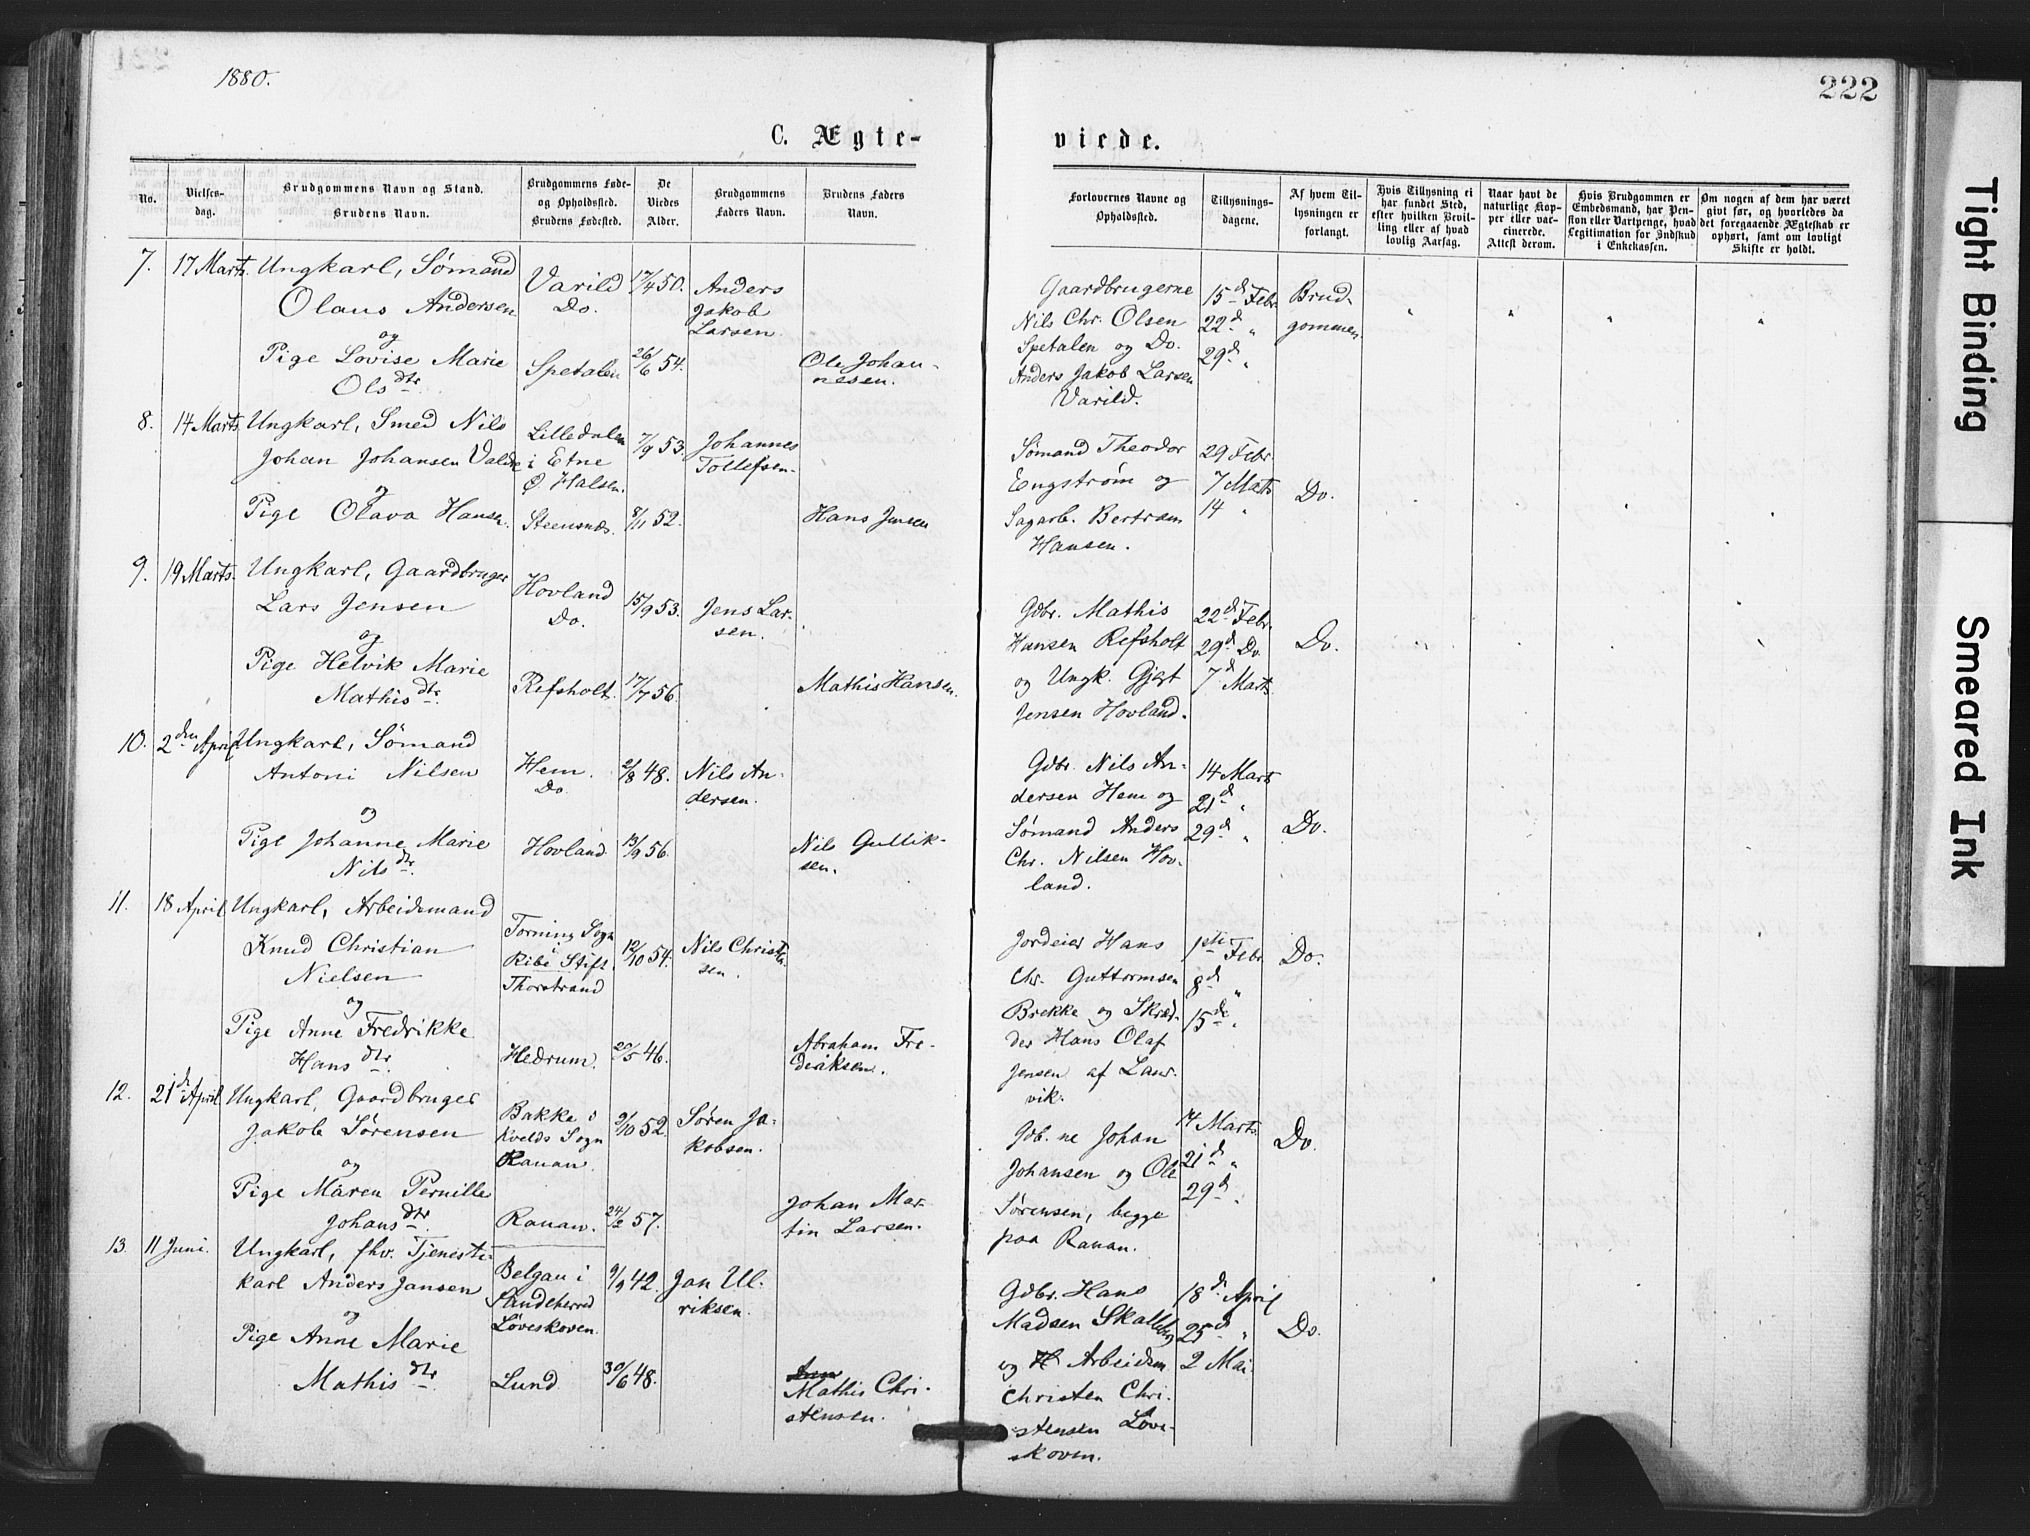 1880.
222
C. Ægte-
viede.
No.
Vielses-
dag.
Brudgommens Navn og Stand.
Brudens Navn.
Brudgommens Føde-
og Opholdssted.
Brudens Fødested.
De
Viedes
Alder.
Brudgommens
Faders Navn.
Brudens Faders
Navn.
Forlovernes Navne og
Opholdssted.
Tillysnings-
dagene.
Af hvem Til-
lysningen er
forlangt.
Hvis Tillysning ei
har fundet Sted,
efter hvilken Bevil-
ling eller af hvad
lovlig Aarsag.
Naar havt de
naturlige Kop-
per eller vac-
cinerede.
Attest derom.
Hvis Brudgommen er
Embedsmand, har Pen-
sion eller Vartpenge, hvad
Legitimation for Indskud
i Enkekassen.
Om nogen af dem har været
givt før, og hvorledes da
det foregaaende Ægteskab er
ophørt, samt om lovligt
Skifte er holdt.
7. 17 Marts. Ungkarl, Sømand
Olaus Andersen
og
Pige Lovise Marie
Olsdtr.
Varild
Do.
Spetalen
17/4 50.
26/6 54.
Anders
Jakob
Larsen.
Ole Johan-
nesen.
Gaardbrugerne
Nils Chr. Olsen
Spetalen og Do.
Anders Jakob Larsen
Varild.
15d Febr.
22d "
29d "
Brud-
gommen
8. 14 Marts. Ungkarl, Smed Nils
Johan Johansen Valde
og
Pige Olava Hansen.
Lilledalen
i Etne
Ø. Halsen.
Steensnæs.
7/9 53.
8/11 52.
Johannes
Tollefsen.
Hans Jensen
Sømand Theodor
Engstrøm og
Sagarb. Bertram
Hansen.
29 Febr.
7 Marts
14 "
Do.
9. 19 Marts. Ungkarl, Gaardbruger
Lars Jensen
og
Pige Helvik Marie
Mathisdtr.
Hovland
Do.
Refsholt.
15/9 53.
17/7 56.
Jens Lar-
sen.
Mathis Hansen.
Gdbr. Mathis
Hansen Refsholt
og Ungk. Gjert
Jensen Hovland.
22d Febr.
29d Do
7d Marts.
Do.
10. 2den April Ungkarl, Sømand
Antoni Nilsen
og
Pige Johanne Marie
Nilsdtr.
Hem.
Do.
Hovland
2/8 48.
13/9 56.
Nils An-
dersen.
Nils Gullik-
sen.
Gdbr. Nils An-
dersen Hem og
Sømand Anders
Chr. Nilsen Hov-
land.
14 Marts
21d "
29d "
Do.
11. 18 April Ungkarl, Arbeidsmand
Knud Christian
Nielsen
og
Pige Anne Fredrikke
Hansdtr.
Torning Sogn
i
Ribe Stift.
Thorstrand
Hedrum.
12/10 54.
20/5 46.
Nils Christen-
sen.
Abraham Fre-
deriksen.
Jordeier Hans
Chr. Guttormsen
Brekke og Skræd-
der Hans Olaf
Jensen af Laur-
vik.
1ste Febr
8d "
15de "
Do.
12. 21d April Ungkarl, Gaardbruger
Jakob Sørensen
og
Pige Maren Pernille
Johansdtr.
Bakke i
Kvelds Sogn
Rauan.
Rauan.
9/10 52.
24/2 57.
Søren Ja-
kobsen.
Johan Mar-
tin Larsen.
Gdb.ne Johan
Johansen og Ole
Sørensen, begge
paa Rauan.
14 Marts.
21d "
29d "
Do.
13. 11 Juni. Ungkarl, fhv. Tjeneste-
karl Anders Jansen
og
Pige Anne Marie
Mathisdtr.
Belgau i
Sandeherred
Løveskoven.
Lund
9/9 42.
30/6 48.
Jan Ul-
riksen.
Mathis Chri-
stensen.
Gdbr. Hans
Madsen Skalleberg
og Arbeidsm.
Christen Chri-
stensen Løve-
skoven.
18d April
25d "
2 Mai.
Do.
Tight Binding
Smeared Ink